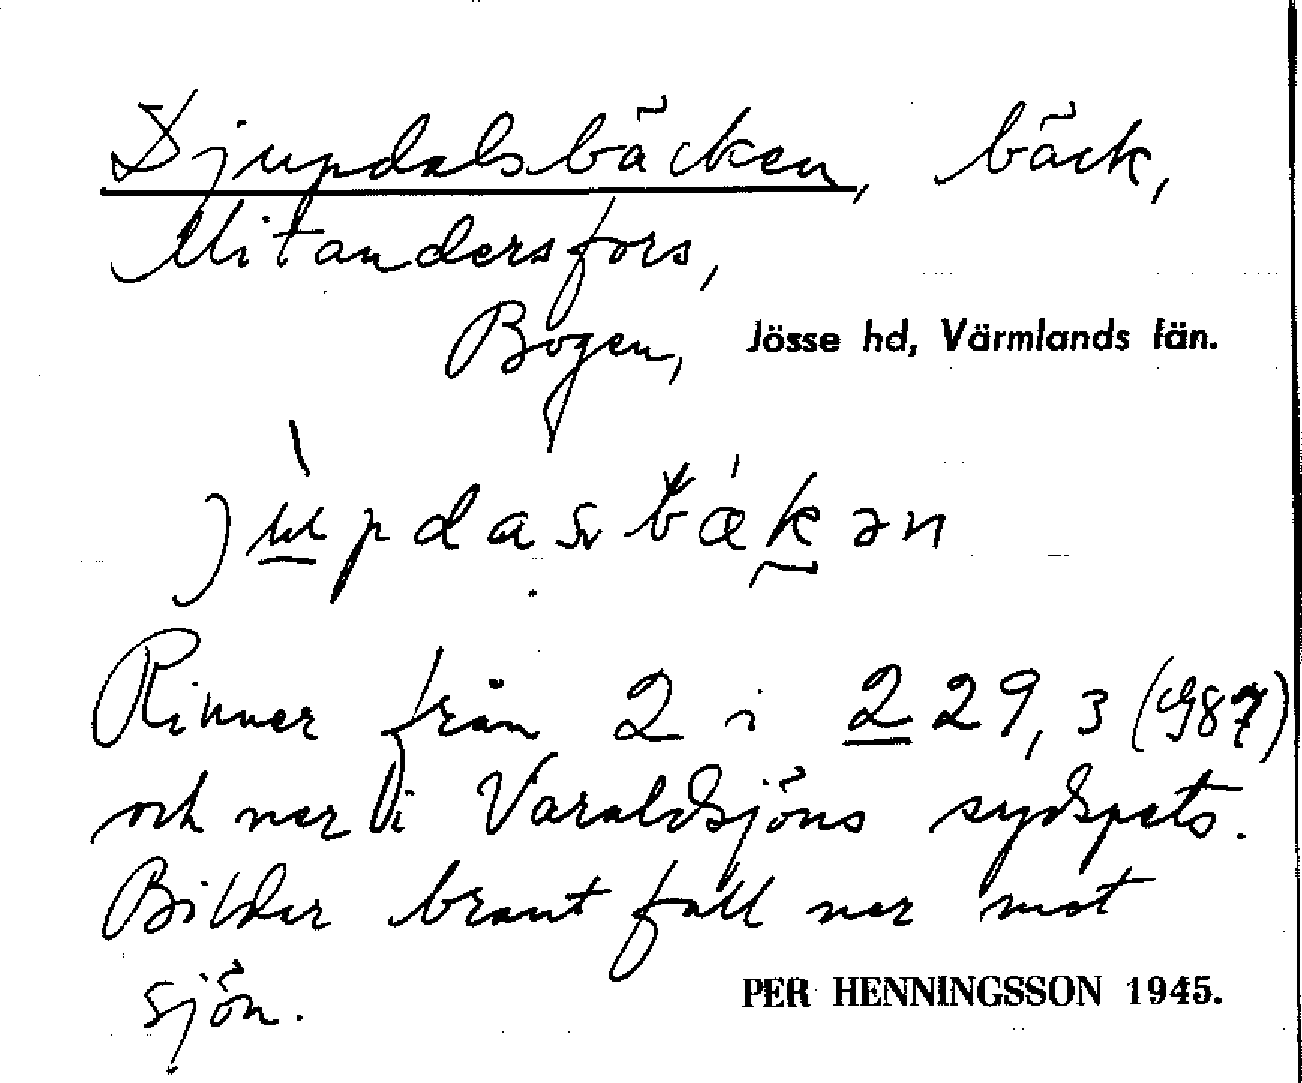 Djupdalsbäcken, bäck,
Mitandersfors,
Bogen, Jösse hd, Värmlands län.
jùpdasbækən
Rinner från 2 i 229,3 (987)
och ner i Varaldsjöns sydspets.
Bildar brant fall ner mot
sjön.
PER HENNINGSSON 1945.